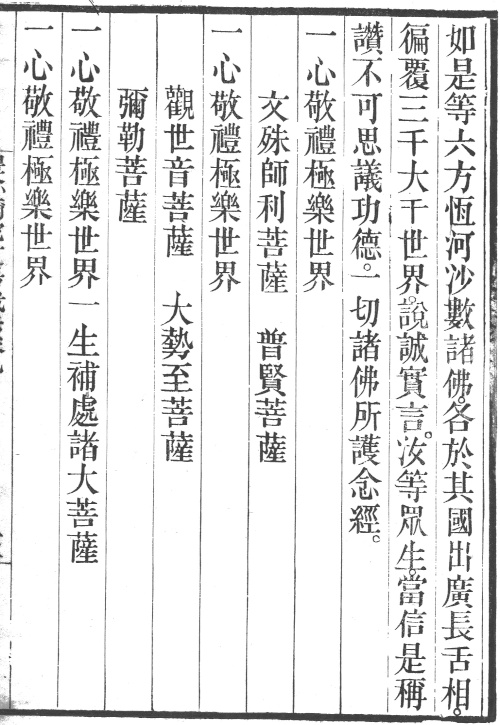 如是等六方恆河沙數諸佛。各於其國出廣長舌相。
徧覆三千大千世界。說誠實言。汝等眾生。當信是稱
讚不可思議功德。一切諸佛所護念經。
一心敬禮極樂世界
文殊師利菩薩　普賢菩薩
一心敬禮極樂世界
觀世音菩薩　大勢至菩薩
彌勒菩薩
一心敬禮極樂世界一生補處諸大菩薩
一心敬禮極樂世界